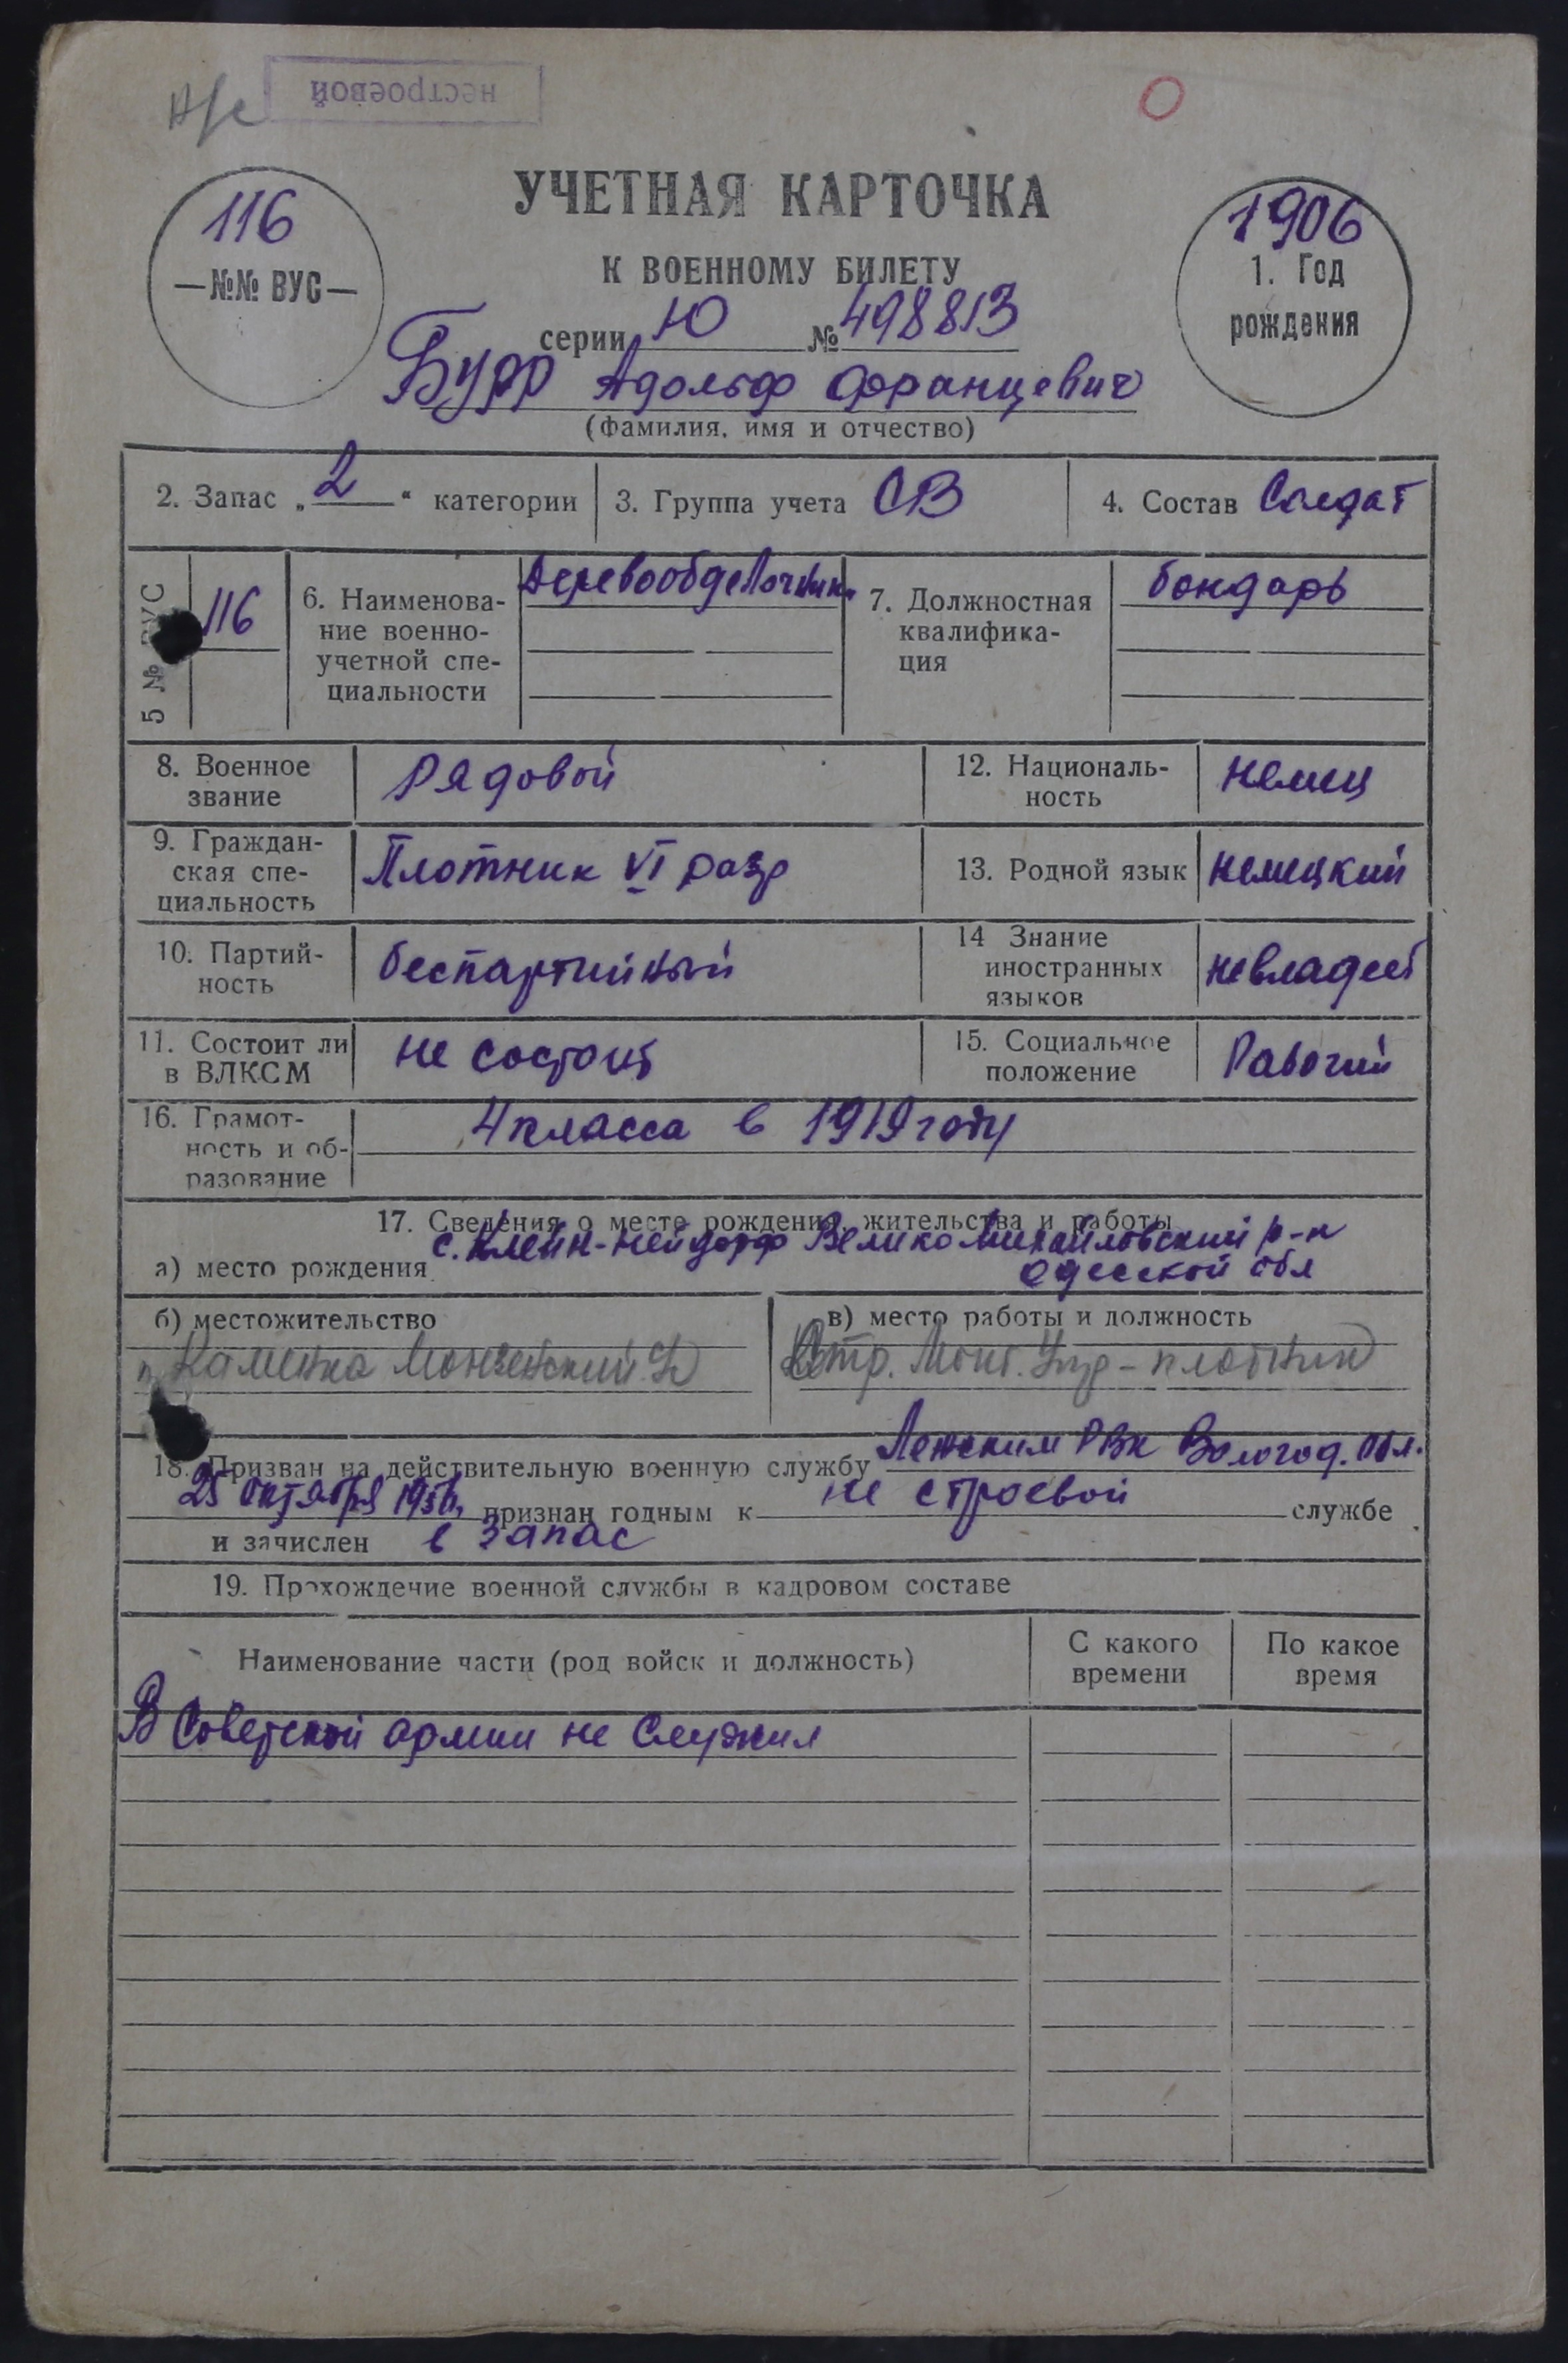 нестроевой
УЧЕТНАЯ КАРТОЧКА
К ВОЕННОМУ БИЛЕТУ
116
—№№ ВУС—
1906
1. Год
рождения
серии Ю № 498813
Адольф Францевич
(фамилия, имя и отчество)
2. Запас „2“ категории
3. Группа учета СВ
4. Состав Солдат
5 № ВУС
116
6. Наименова-
ние военно-
учетной спе-
циальности
Деревообделочник.
7. Должностная
квалифика-
ция
бондарь
8. Военное
звание
Рядовой
12. Националь-
ность
немец
9. Граждан-
ская спе-
циальность
Плотник VI разр
13. Родной язык
немецкий
10. Партий-
ность
беспартийный
14 Знание
иностранных
языков
невладеет
11. Состоит ли
в ВЛКСМ
не состоит
15. Социальное
положение
Рабочий
16. Грамот-
ность и об-
разование
4 класса в 1919 году
17. Сведения о месте рождения, жительства и работы
а) место рождения с. Клейн-Нейдорф ВеликоМихайловский р-н
Одесской обл
б) местожительство
п. Каменка Монзенский
в) место работы и должность
Стр. Монт. Упр - плотник
18. Призван на действительную военную службу Лежским РВК Вологод. Обл.
25 октября 1956, признан годным к не строевой службе
и зачислен в запас
19. Прохождение военной службы в кадровом составе
Наименование части (род войск и должность)
С какого
времени
По какое
время
В Советской армии не служил